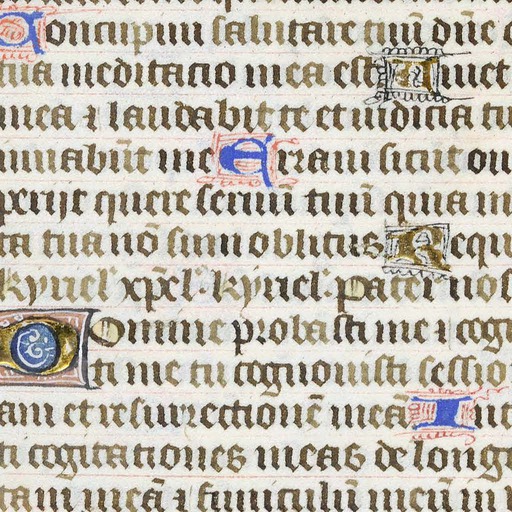 Concupiui salutare tuū dn̄e
tua meditatio mea est Uiuet
mea ⁊ laudabit te et iudicia tu
iuuabūt me Erraui sicut ou
periit quere seruū tuū quia m
ta tua nō sum oblitus Requ
kyriel xp̄el kyriel Pater nos
Domine probasti me ⁊ cogn
ti me tu cognouisti sessio
am et resurrectionē meā Int
ti cogitationes meas de longe
tam meā ⁊ funiculū meū in